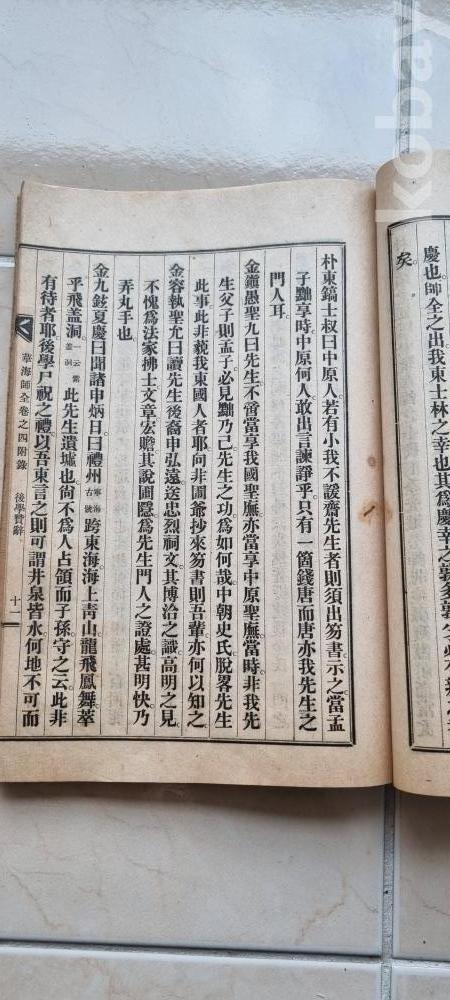 慶也師全之出我東士林之幸也其爲慶幸之
矣
朴東鎬士叔曰中原人若有小我不設齋先生者則須出笏書示之當孟
子黜享時中原何人敢出言諫諍乎只有一箇錢唐而唐亦我先生之
門人耳
金 愚聖九曰先生不啻當享我國聖廡亦當享中原聖廡當時非我先
生父子則孟子必見黜乃已先生之功爲如何哉中朝史氏脫畧先生
此事此非藐我東國人者耶向非圃爺抄來笏書則吾輩亦何以知之
金容執聖尤曰讀先生後裔申弘遠送忠烈祠文其博洽之識高明之見
不愧爲法家拂士文章宏贍其說圃隱爲先生門人之證處甚明快乃
弄丸手也
金九鉉夏慶曰聞諸申炳日曰禮州寧海古號跨東海海上靑山龍飛鳳舞萃
乎飛盖洞一云紫盖洞此先生遺墟也尙不爲人占領而子孫守之云此非
有待者耶後學尸祝之禮以吾東言之則可謂井泉皆水何地不可而
華海師全卷之四附錄
後學贊辭
十一
kobay